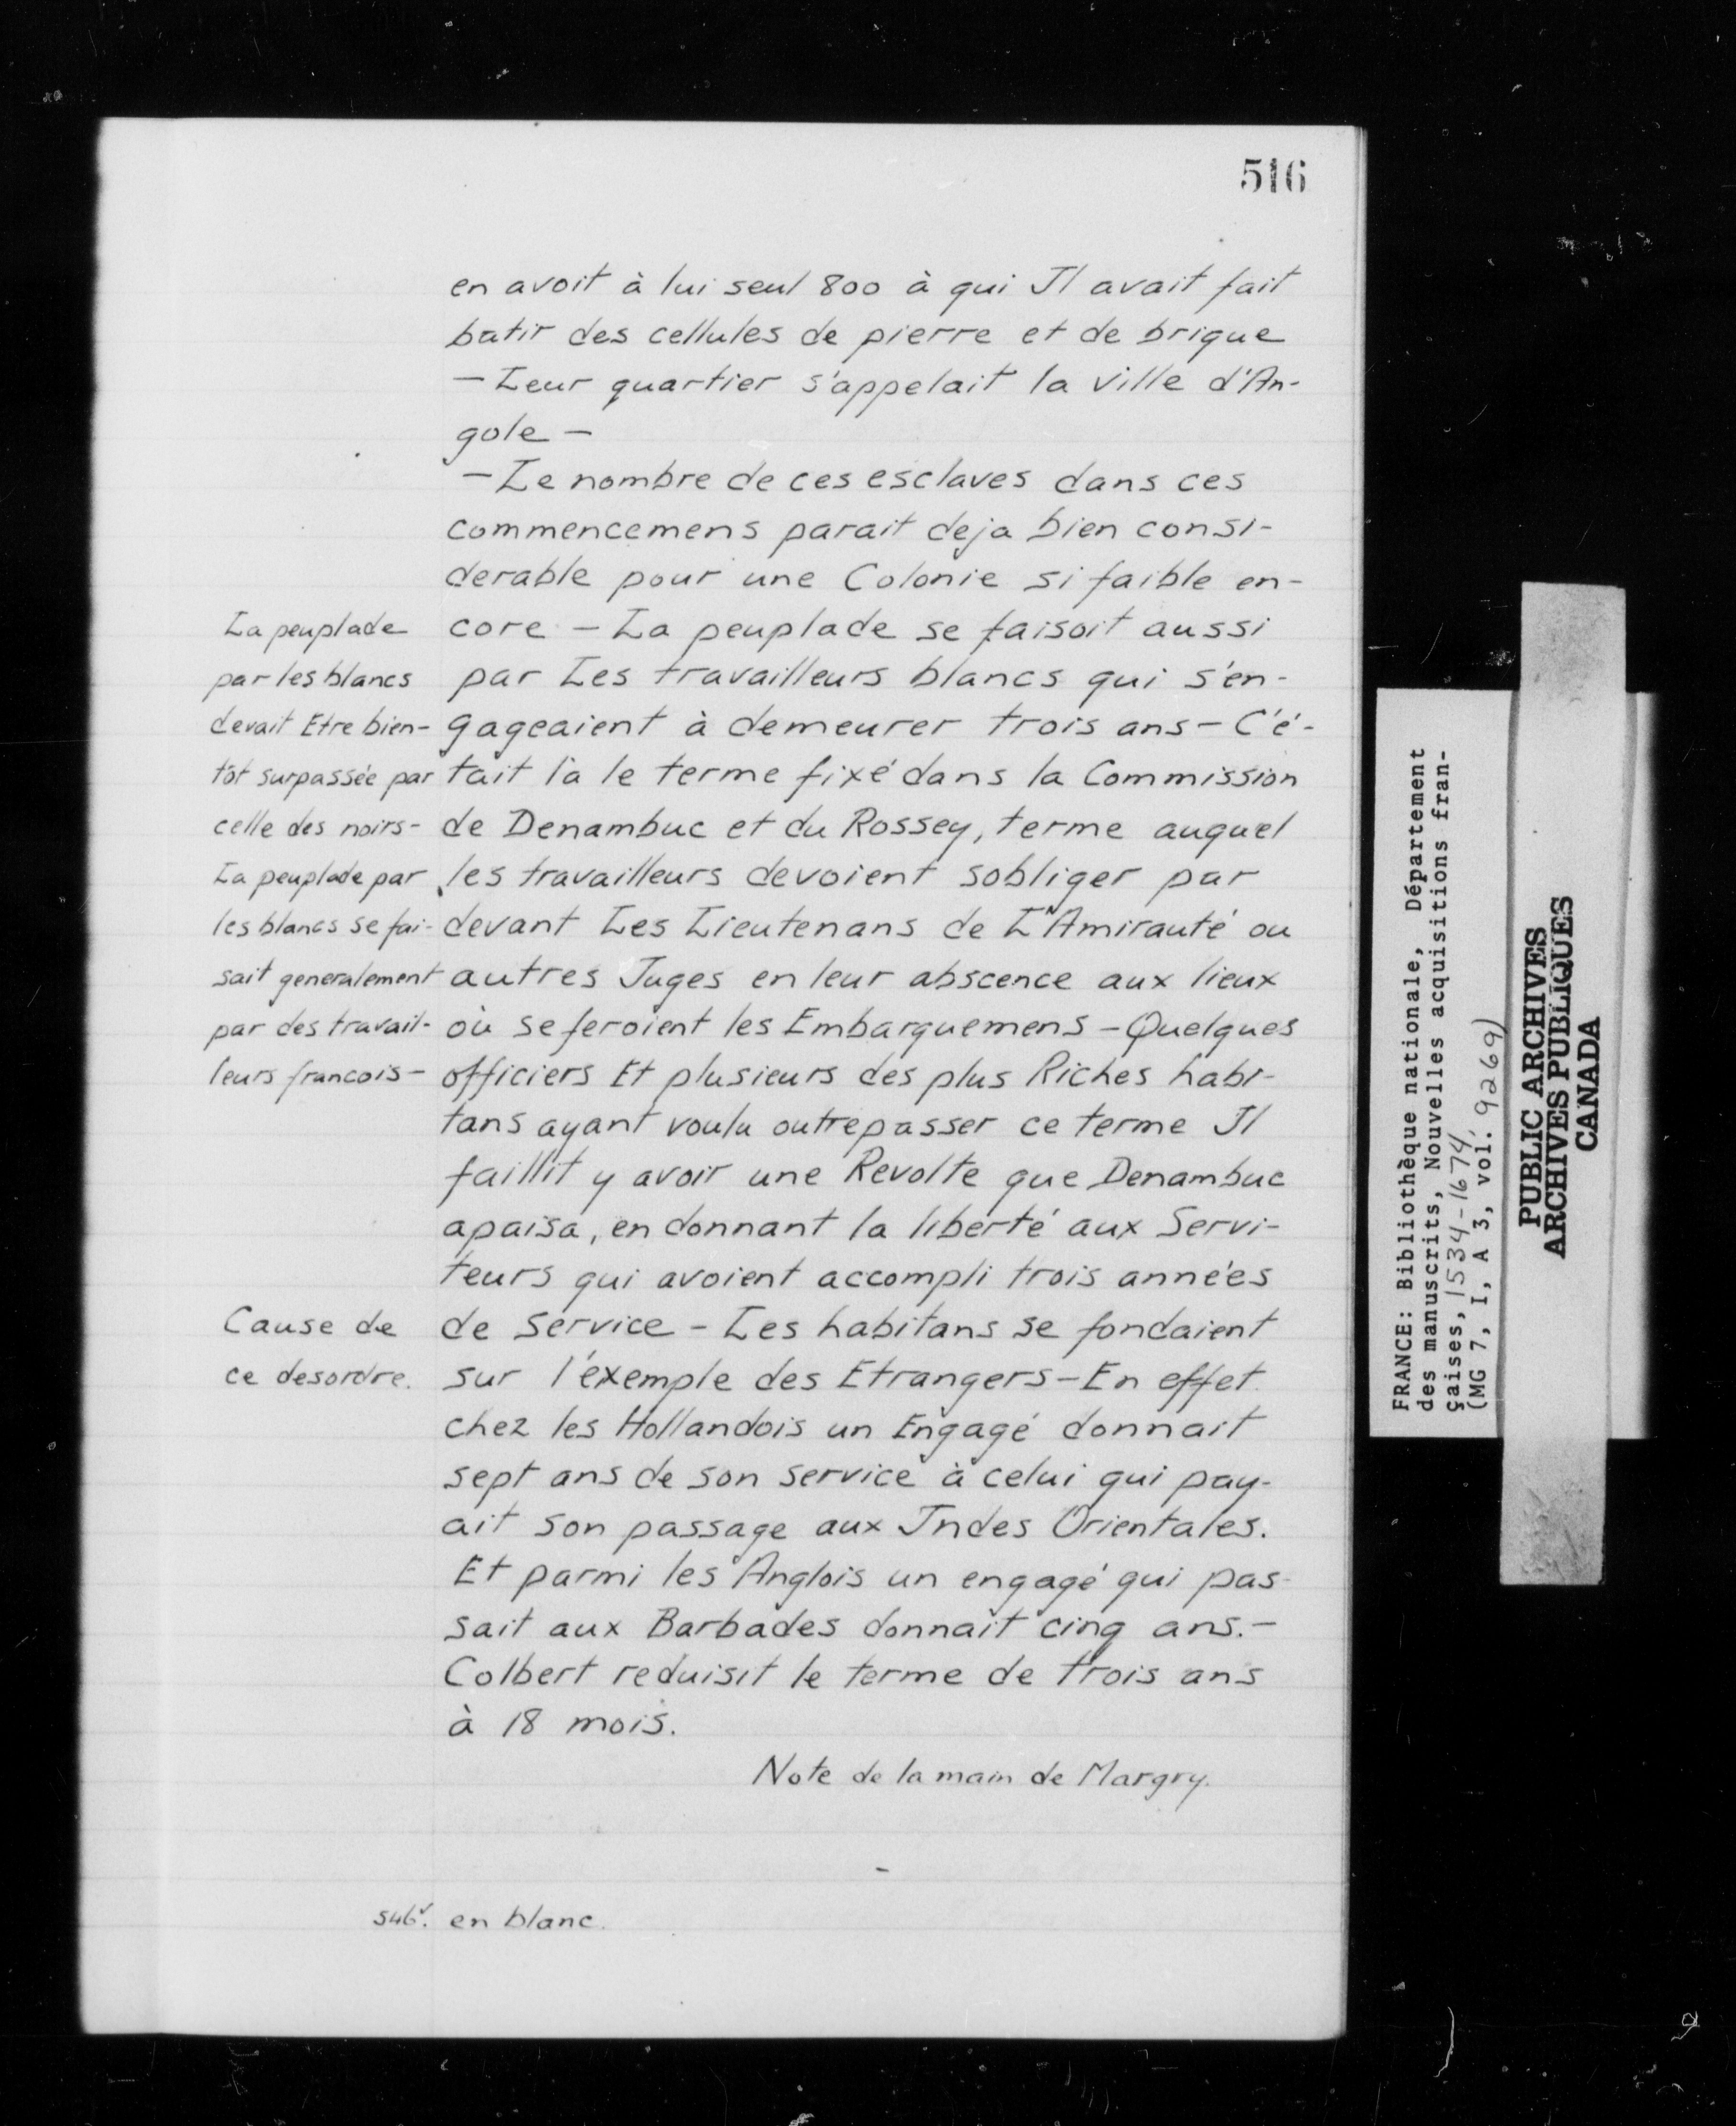 516
en avoit à lui seul 800 à qui Il avait fait
batir des cellules de pierre et de brique
— Leur quartier s'appelait la ville d'An-
gole —
— Le nombre de ces esclaves dans ces
commencemens parait deja bien consi-
derable pour une Colonie si faible en-
core — La peuplade se faisoit aussi
par Les travailleurs blancs qui s'en-
gageaient à demeurer trois ans — C'é-
tait là le terme fixé dans la Commission
de Denambuc et du Rossey, terme auquel
les travailleurs devoient sobliger par
devant Les Lieutenans de L'Amirauté ou
autres Juges en leur abscence aux lieux
où se feroient les Embarquemens — Quelques
officiers Et plusieurs des plus Riches habi-
tans ayant voulu outrepasser ce terme Il
faillit y avoir une Revolte que Denambuc
apaisa, en donnant la liberté aux Servi-
teurs qui avoient accompli trois années
de service — Les habitans se fondaient
sur l'éxemple des Etrangers — En effet
chez les Hollandois un Engagé donnait
sept ans de son service à celui qui pay-
ait son passage aux Indes Orientales.
Et parmi les Anglois un engagé qui pas-
sait aux Barbades donnait cinq ans. —
Colbert reduisit le terme de trois ans
à 18 mois.
Note de la main de Margry.
La peuplade
par les blancs
devait Etre bien-
tôt surpassée par
celle des noirs —
La peuplade par
les blancs se fai-
sait generalement
par des travail-
leurs francois —
Cause de
ce desordre.
546v. en blanc.
FRANCE: Bibliothèque nationale, Département
des manuscrits, Nouvelles acquisitions fran-
çaises, 1534-1674
(MG 7, I, A 3, vol. 9269)
PUBLIC ARCHIVES
ARCHIVES PUBLIQUES
CANADA